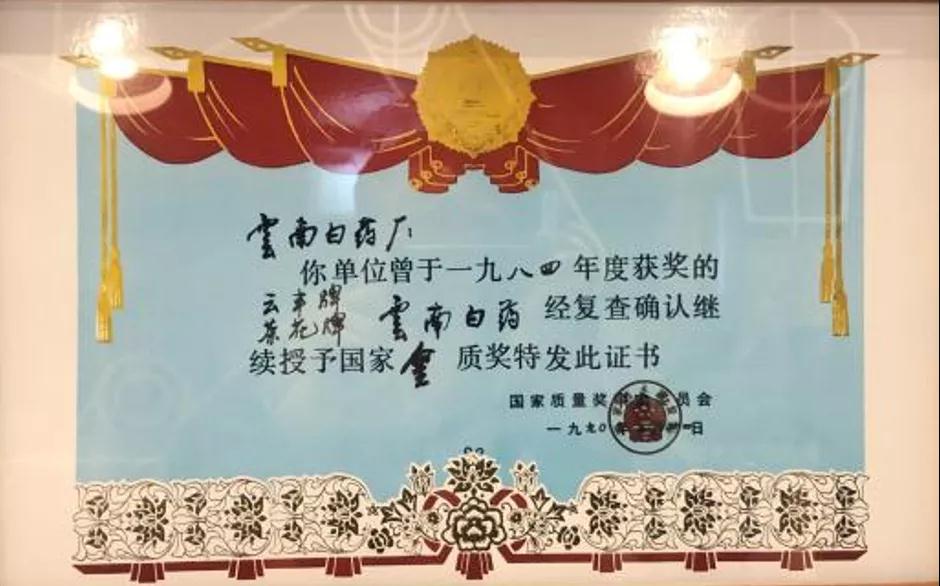 雲南白药厂:
你单位曾于一九八四年度获奖的
云丰牌
茶花牌 雲南白药 经复查确认继
续授予国家金质奖特发此证书
国家质量奖 员会
一九九〇年 日